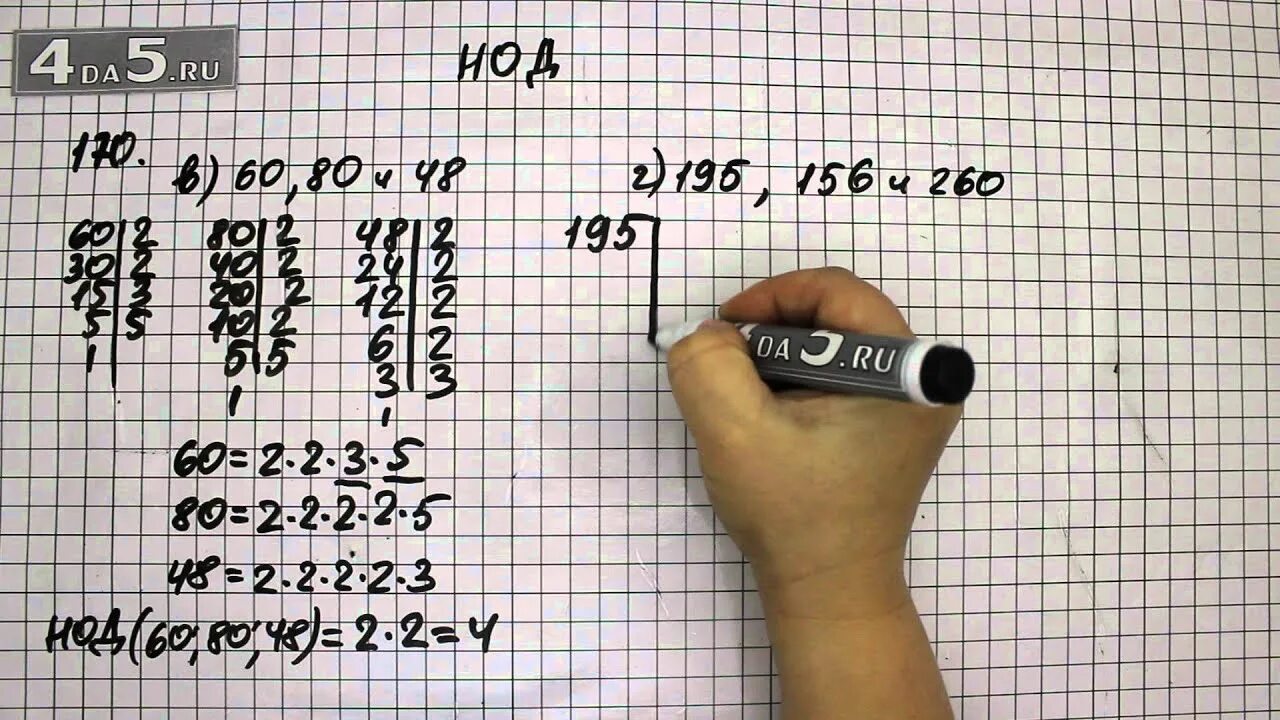 4DA5.RU
НОД
170.
в) 60, 80 и 48
60 | 2
30 | 2
15 | 3
5 | 5
1 |
80 | 2
40 | 2
20 | 2
10 | 2
5 | 5
1
48 | 2
24 | 2
12 | 2
6 | 2
3 | 3
1
60 = 2 · 2 · 3 · 5
80 = 2 · 2 · 2 · 2 · 5
48 = 2 · 2 · 2 · 2 · 3
НОД (60; 80; 48) = 2 · 2 = 4
г) 195, 156 и 260
195 |
DA 5.RU